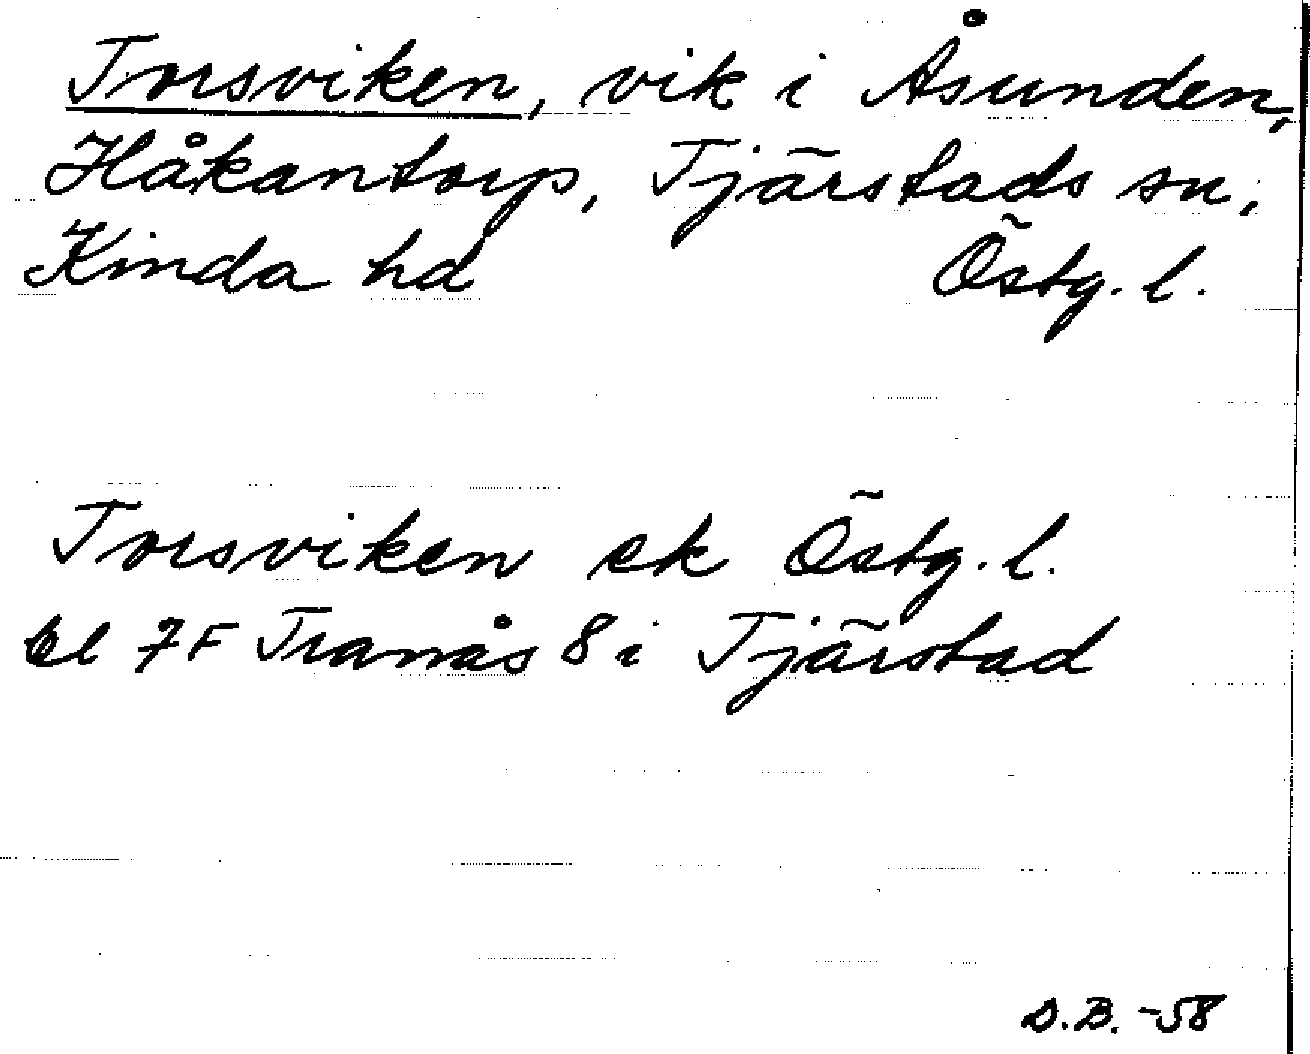 Torsviken, vik i Åsunden,
Håkantorp, Tjärstads sn,
Kinda hd Östg. l.
Torsviken ek Östg. l.
bl 7F Tranås 8 i Tjärstad
D.B. -58